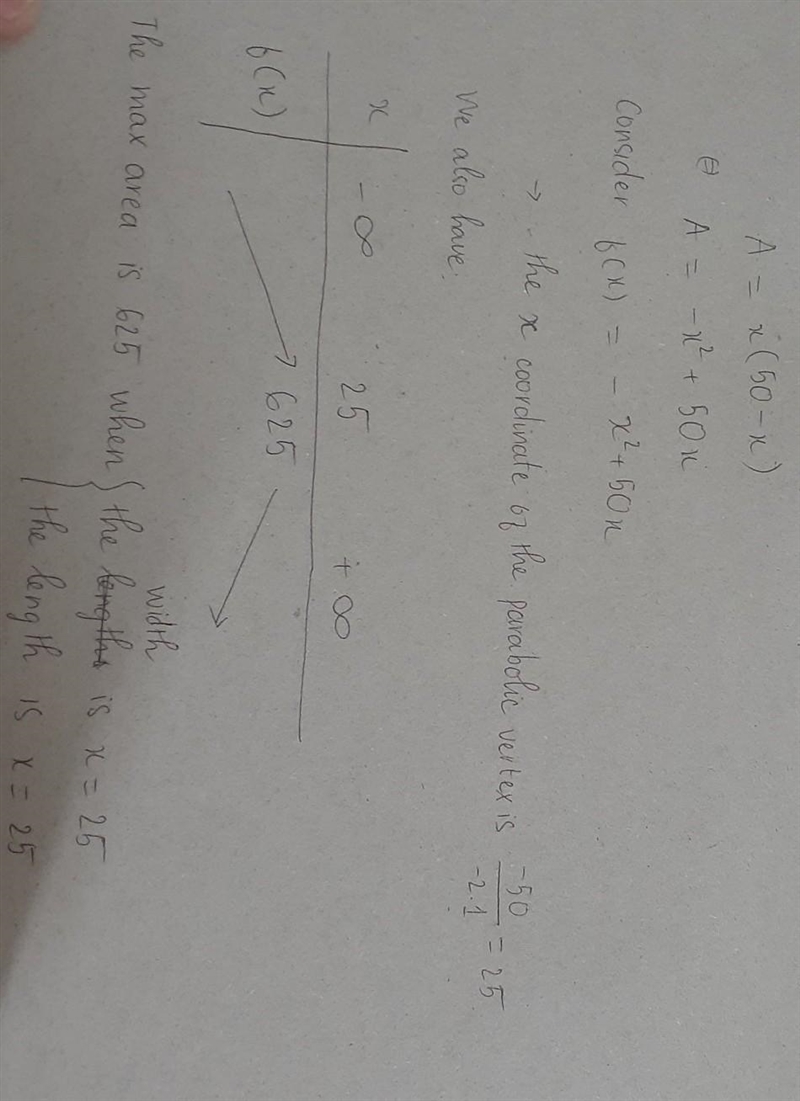 A = x(50-x)
⇔ A = -x² + 50x
Consider f(x) = -x² + 50x
→ the x coordinate of the parabolic vertex is -50/-2.1 = 25
We also have:
x | -∞ 25 +∞
f(x) | ↗ 625 ↘
The max area is 625 when { the width is x = 25
the length is x = 25